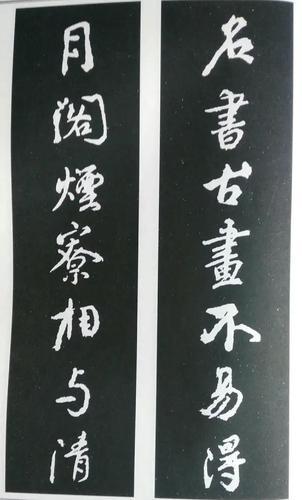 名書古畫不易得
月閣煙寮相与清